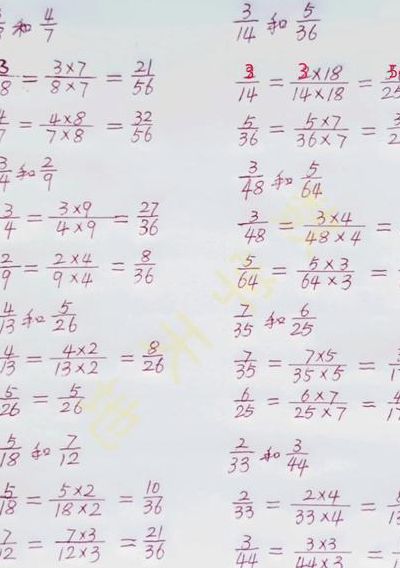 3/8 和 4/7
3/8 = 3×7/8×7 = 21/56
4/7 = 4×8/7×8 = 32/56
3/4 和 2/9
3/4 = 3×9/4×9 = 27/36
2/9 = 2×4/9×4 = 8/36
4/13 和 5/26
4/13 = 4×2/13×2 = 8/26
5/26 = 5/26
5/18 和 7/12
5/18 = 5×2/18×2 = 10/36
7/12 = 7×3/12×3 = 21/36
3/14 和 5/36
3/14 = 3×18/14×18 =
5/36 = 5×7/36×7 =
3/48 和 5/64
3/48 = 3×4/48×4 =
5/64 = 5×3/64×3 =
7/35 和 6/25
7/35 = 7×5/35×5 =
6/25 = 6×7/25×7 =
2/33 和 3/44
2/33 = 2×4/33×4 =
3/44 = 3×3/44×3 =